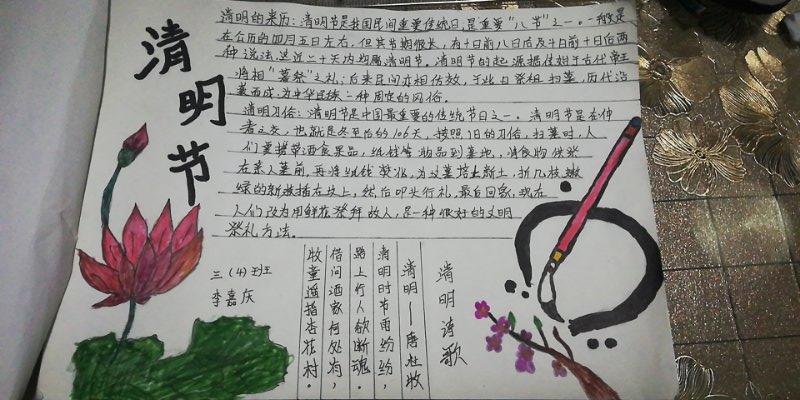 清明节
清明的来历：清明节是我国民间重要传统节日，是重要“八节”之一。一般是
在公历的四月五日左右，但其节期很长，有十日前八日后及十日前十日后两
种说法，这近二十天内均属清明节。清明节的起源据传始于古代帝王
将相“墓祭”之礼，后来民间亦相仿效，于此日祭祖扫墓，历代沿
袭而成为中华民族一种固定的风俗。
清明习俗：清明节是中国最重要的传统节日之一。清明节是在仲
春之交，也就是冬至后的106天，按照旧的习俗，扫墓时，人
们要携带酒食果品，纸钱等物品到墓地，将食物供祭
在亲人墓前，再将纸钱焚化，为坟墓培上新土，折几枝嫩
绿的新枝插在坟上，然后叩头行礼，最后回家，现在
人们改为用鲜花祭拜故人，是一种很好的文明
祭礼方法。
三（4）班
李嘉庆
清明诗歌
清明—唐杜牧
清明时节雨纷纷，
路上行人欲断魂。
借问酒家何处有，
牧童遥指杏花村。